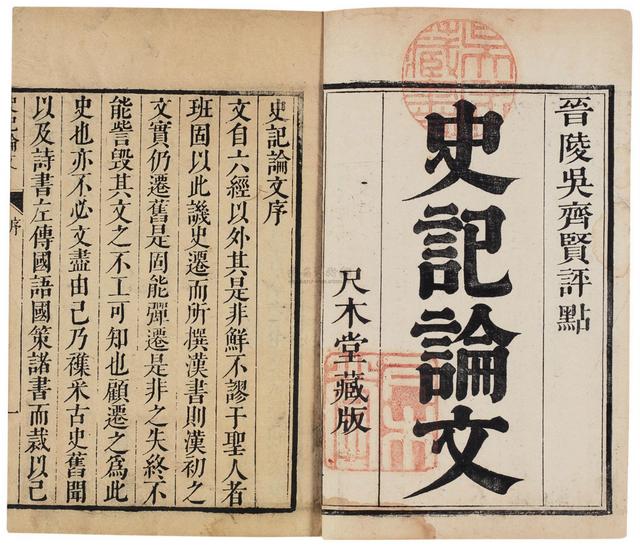 晉陵吳齊賢評點
史記論文
尺木堂藏版
史記論文序
文自六經以外其是非鮮不謬于聖人者
班固以此譏史遷而所撰漢書則漢初之
文實仍遷舊是固能彈遷是非之失終不
能訾毀其文之不工可知也顧遷之爲此
史也亦不必文盡由己乃襍采古史舊聞
以及詩書左傳國語國策諸書而裁以己
序